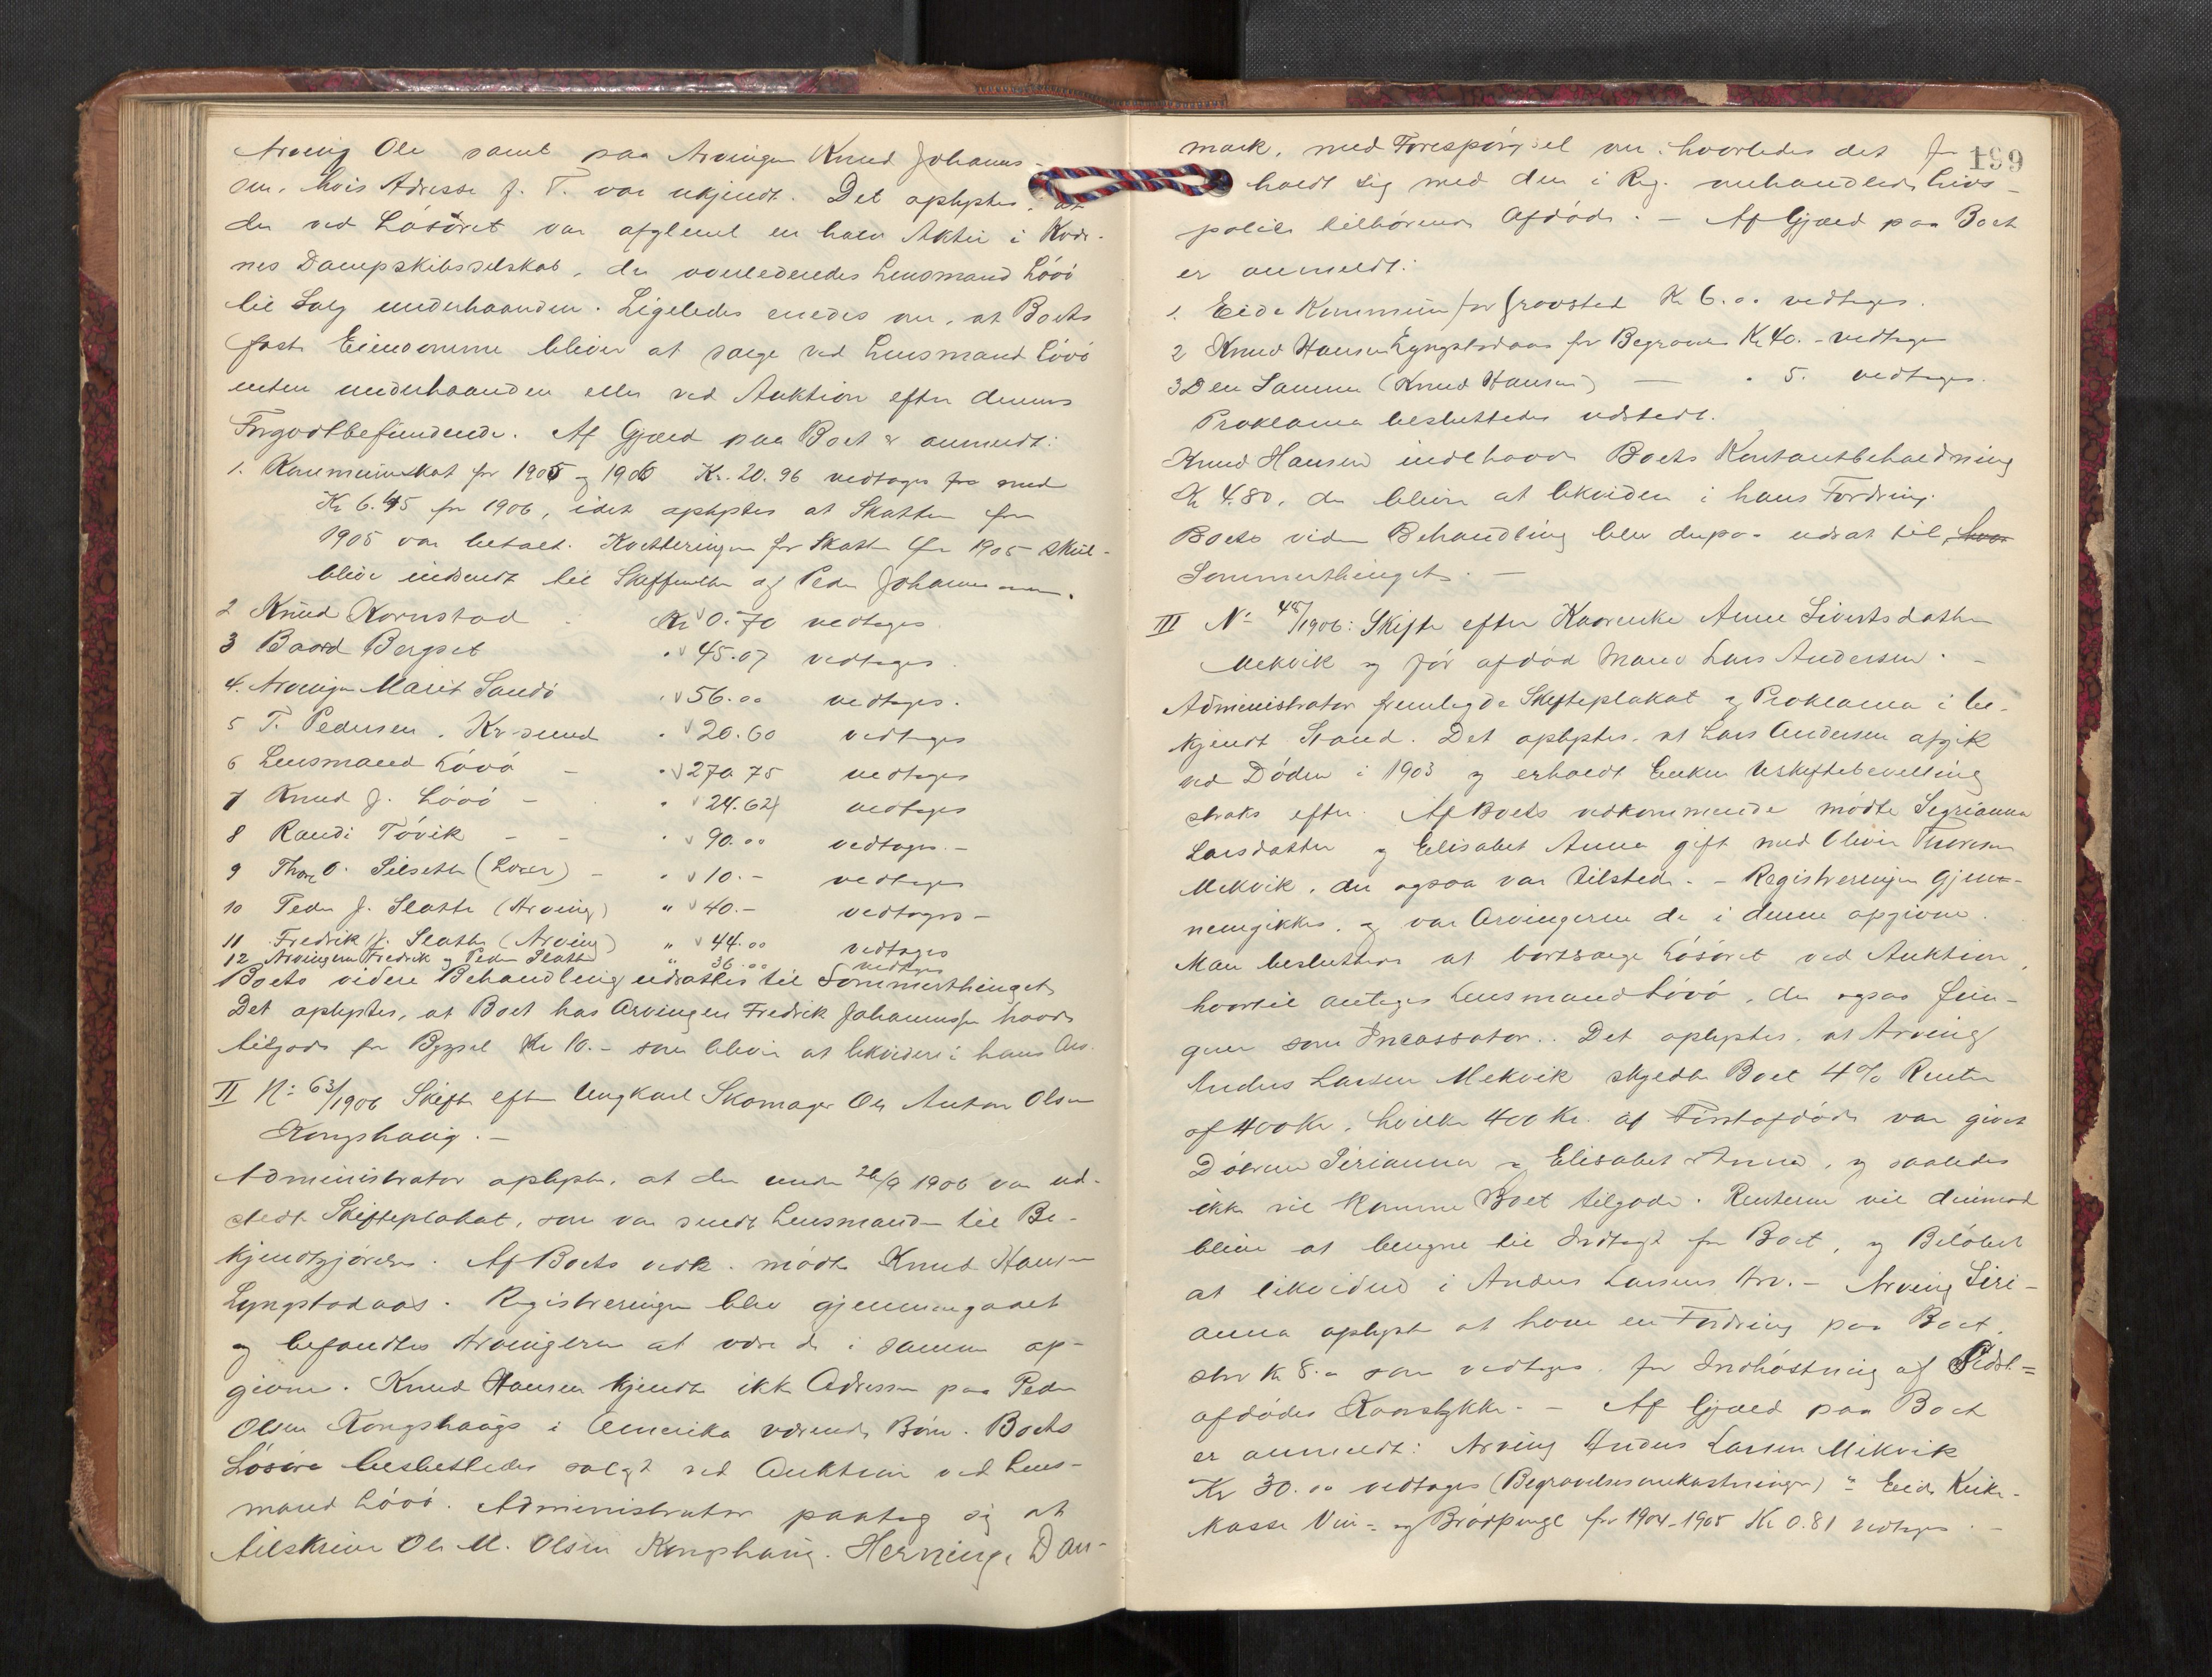 Arving Ole samt paa Arvingen Knud Johannes-
sen, hvis Adresse f. T. var ukjendt. Det oplystes, at
der ved Løsøret var afglemt en halv Aktie i Kvær-
nes Dampskibsselskab, der overlededes Lensmand Løvø
til Salg underhaanden. Ligeledes enedes om, at Boets
faste Eiendomme bliver at sælge ved Lensmand Løvø
enten underhaanden eller ved Auktion efter dennes
Forgodtbefindende. Af Gjæld paa Boet er anmeldt:
1. Kommuneskat for 1905 og 1906 Kr. 20.96 vedtoges med
Kr 6.45 for 1906, idet oplystes at Skatten for
1905 var betalt. Kvitteringen for Skatten for 1905 skul-
blive indsendt til Skifteretten af Peder Johannessen.
2 Knud Kornstad Kr 0.70 vedtoges
3 Baard Bergset " 45.07 vedtoges.
4. Arvingen Marit Sandø " 56.00 vedtoges.
5 T. Pedersen, Kr-sund " 20.60 vedtoges
6 Lensmand Løvø - " 270 75 vedtoges
7 Knud J. Løvø - " 24.62 vedtoges
8 Randi Tøvik - - " 90.00 vedtoges.-
9 Thore O. Silseth (Løser) - " 10.- vedtoges
10 Peder J. Slatte (Arving) " 40.- vedtoges-
11 Fredrik J. Slatte (Arving) " 44.00 vedtoges
12 Arvingerne Fredrik og Peder Slatte " 36.00 vedtoges
Boets videre Behandling udsattes til Sommerthinget.
Det oplystes, at Boet hos Arvingen Fredrik Johannessen havde
tilgode for Bygsel Kr 10.- som bliver at likvidere i hans Arv.
II No 63/1906 Skifte efter Ungkarl Skomager Ole Anton Olsen
Kongshaug.-
Administrator oplyste, at der under 26/9 1906 var ud-
stedt Skifteplakat, som var sendt Lensmanden til Be-
kjendtgjørelse. Af Boets vedk. mødte Knud Hansen
Lyngstadaas. Registreringen blev gjennemgaaet
og befandtes Arvingerne at være de i samme op-
givne. Knud Hansen kjendte ikke Adressen paa Peder
Olsen Kongshaugs i Amerika værende Børn. Boets
Løsøre besluttedes solgt ved Auktion ved Lens-
mand Løvø. Administrator paatog sig at
tilskrive Ole M. Olsen Kongshaug. Herning, Dan-
199
mark, med Forespørgsel om, hvorledes det for
holdt sig med den i Reg. omhandlede Livs-
polise tilhørende Afdøde. - Af Gjæld paa Boet
er anmeldt:
1. Eide Kommune for Gravsted Kr 6.00 vedtoges.
2 Knud Hansen Lyngstadaas for Begravelse Kr 40.- vedtoges
3 Den Samme (Knud Hansen) — " 5. vedtoges.
Proklama besluttedes udstedt.
Knud Hansen indehavde Boets Kontantbeholdning
Kr 4.80, der bliver at likvidere i hans Fordring.
Boets videre Behandling blev derpaa udsat til hver
Sommerthinget. -
III No 48/1906: Skifte efter Kaarenke Anne Sivertsdatter
Mekvik og før afdød Mand Lars Andersen. -
Administrator fremlagde Skifteplakat og Proklama i be-
kjendt Stand. Det oplystes, at Lars Andersen afgik
ved Døden i 1903 og erholdt Enken Uskiftebevilling
straks efter. Af Boets vedkommende mødte Segrianna
Larsdatter og Elisabet Anna gift med Oliver Thoresen
Mekvik, der ogsaa var tilstede. - Registreringen gjen-
nemgikkes, og var Arvingerne de i denne opgivne.
Man besluttedes at bortsælge Løsøret ved Auktion,
hvortil antoges Lensmand Løvø, der ogsaa fun-
gerer som Incassator.. Det oplystes, at Arving
Anders Larsen Mekvik skyldte Boet 4% Renter
af 400 Kr, hvilke 400 Kr. af Førstafdøde var givet
Døtrene Serianna og Elisabet Anna, og saaledes
ikke vil komme Boet tilgode. Renterne vil derimod
blive at beregne til Indtægt for Boet, og Beløbet
at likvidere i Anders Larsens Arv. - Arving Seri-
anna oplyste at have en Fordring paa Boet,
stor Kr 8.- som vedtoges, for Indhøstning af Sidst=
afdødes Kaarstykke. - Af Gjæld paa Boet
er anmeldt: Arving Anders Larsen Mekvik
Kr 30.00 vedtoges (Begravelsesomkostninger) " Eide Kirke-
kasse Vin- og Brødpenge for 1904-1905 Kr 0.81 vedtoges. -